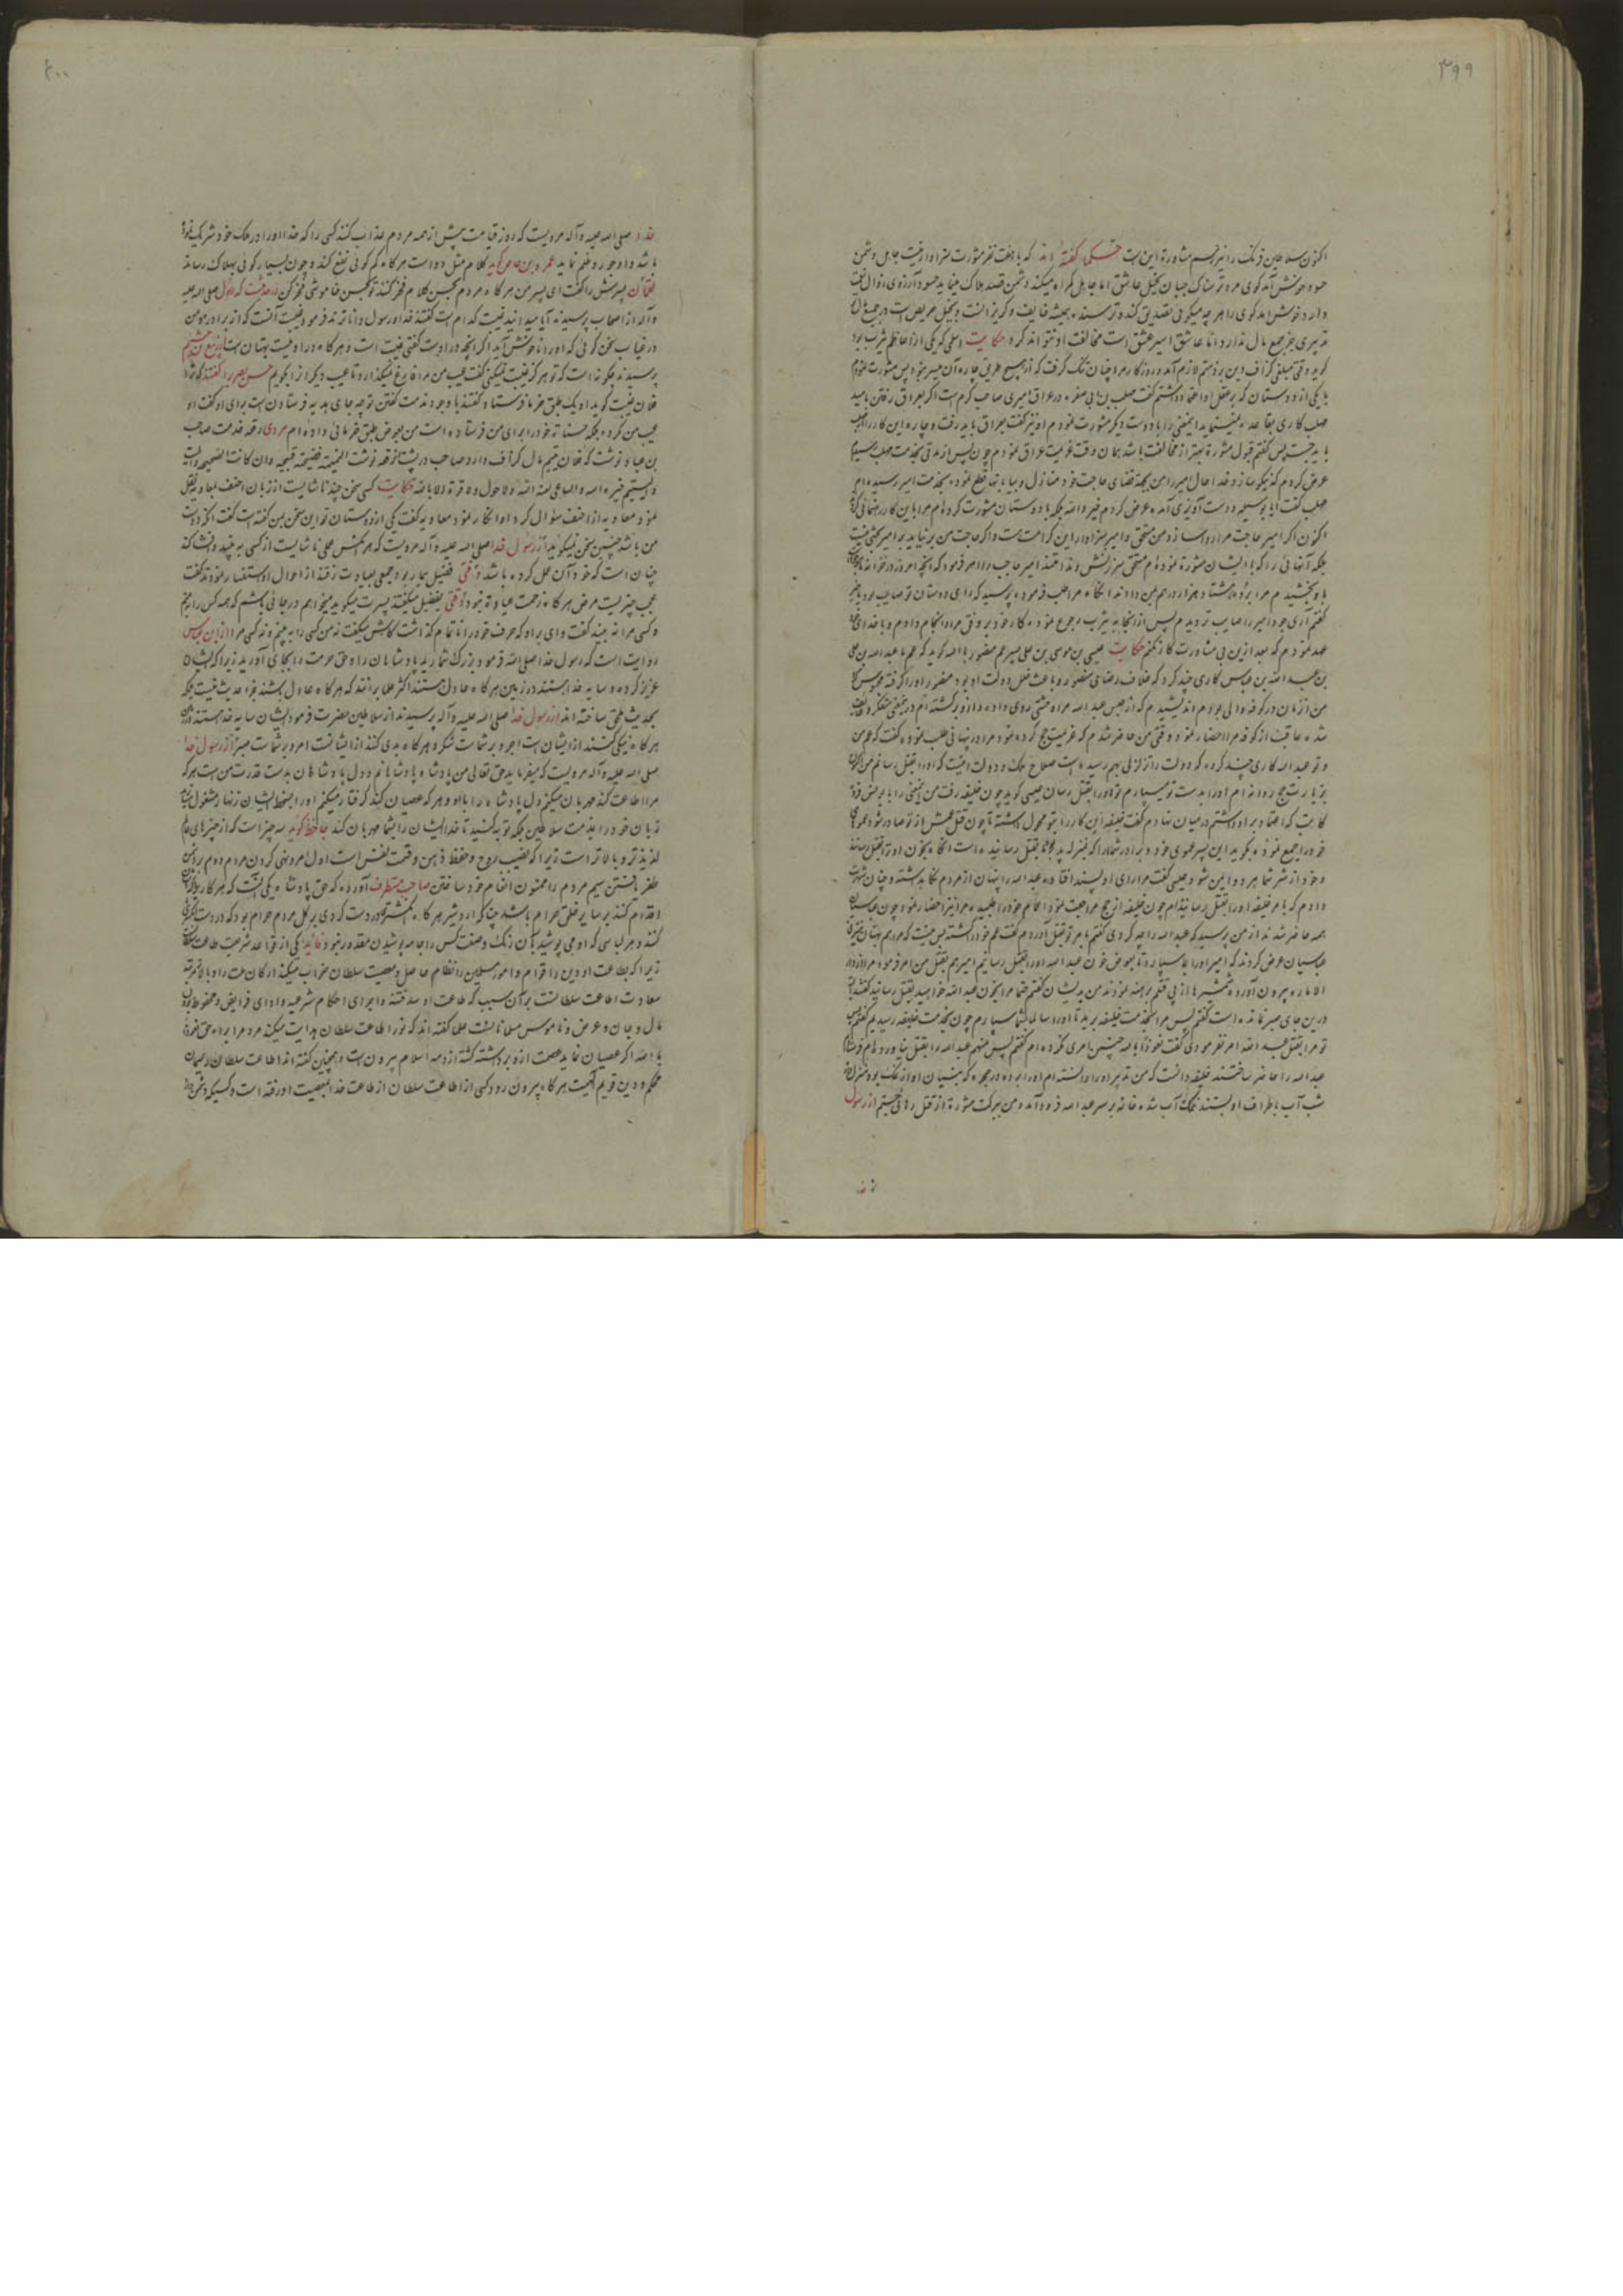 ۳۹۹
اکنون سلاطین فرنک را نیز رسم مشاوره این است حکما گفته اند که با هفت نفر مشورت سزاوار نیست جاهل و دشمن
حسود خوشش آمد کوی مرد ترسناک جبان بخیل عاشق اما جاهل کمراه میکند دشمن قصد هلاک مینماید حسود آرزوی زوال نعمت
دارد خوش آمد کوی را هر چه میکوئی تصدیق کننده ترسنده همیشه خایف و کریزانست و بخیل حریص است در جمع مال
تدبیری بجز جمع مال ندارد اما عاشق اسیر عشق است مخالفت او نتواند کرد حکایت اصلی که یکی از اعاظم یثرب بود
کوید وقتی مبلغی کزاف دین بر ذمتم لازم آمد و روزکار مرا چنان تنک کرفت که از هیچ طرفی چاره آن میسر نبود پس مشورت نمودم
با یکی از دوستان که بر عقل او اعتماد داشتم گفت مهلب بن ابی صفره در عراق امیری صاحب کرم است اکر بعراق رفتی باید
باید جست پس کفتم قبول مشوره بهتر از مخالفت باشد همان وقت عزیمت عراق نمودم چون پس از مدتی بخدمت مهلب رسیدم
عرض کردم که نیکو سازد خدا حال امیر را من بجهة قضای حاجت خود منازل و بیابانها قطع نموده بخدمت امیر رسیده ام
مهلب گفت ایا بوسیله دوست آویزی آمده عرض کردم خیر والله بلکه با دوستان مشورت کرده ام مرا باین کار رهنمائی کردند
اکنون اکر امیر حاجت مرا روا سازد من مستحق و امیر سزاوار این کرامت است و اکر حاجت من بر نیاید بر امیر بحثی نیست
بلکه آنهائی را که با ایشان مشورة نموده ام مستحق سرزنش و ندامتند امیر حاجب را امر فرمود که آنچه امروز در خزانه ما موجود
ما و بخشیدم مرا برده هشتاد هزار درهم بمن دادند انکاه مرا طلب فرموده پرسید که رای دوستان تو صایب بود یا خیر
کفتم آری جود امیر را صایب تر دیدم پس از آنجا به یثرب رجوع نموده کار خود بر وفق مراد انجام دادم و با خدای خود
عهد نمودم که بعد از این بی مشاورت کار نکنم حکایت عیسی بن موسی بن علی پسر عم منصور بالله کوید که عم ما عبدالله بن علی
بن عبدالله بن عباس کاری چند کرد که خلاف رضای منصور و باعث خلل دولت او بود منصور او را کرفته محبوس کرد
من آن زمان در کوفه والی بودم اندیشیدم که از حبس عبدالله مرا وحشتی روی داده
و تو عبدالله کاری چند کرده که دولت را تزلزلی بهم رسیده است صلاح ملک و دولت اینست که او را بقتل رسانم من اکنون
بزیارت حج روانه ام او را بدست تو میسپارم تو او را بقتل رسان عیسی کوید چون خلیفه رفت من یونس بن فروه
کاتب که اعتماد بر او داشتم در میان نهادم گفت خلیفه این کار را بتو محول داشته تا چون قتل عمش از تو صادر شود عموهای
خود را جمع نموده بکوید این پسر عموی خود و برادر شما را که بمنزله پدر بقتل رسانیده است انکاه بخون او ترا بقتل رسانند
و خود از شر شما هر دو ایمن شود عیسی گفت مرا رای او پسند افتاده عبدالله را پنهان از مردم نکاه داشته و چنان شهرت
دادم که بامر خلیفه او را بقتل رسانیده ام چون خلیفه از حج مراجعت نمود اعمام خود را طلبیده مرا نیز احضار نمود چون عباسیان
همه حاضر شدند از من پرسید که عبدالله را چه کردی کفتم بامر تو بقتل آوردم گفت عم خود را کشته
عباسیان عرض کردند که امیر او را بما سپارد تا بعوض خون عبدالله او را بقتل رسانیم امیر هم بقتل من امر فرمود مرا از دار
الاماره بیرون آورده شمشیرها از پی قتلم برهنه نمودند من بدیشان کفتم حتما مرا بخون عبدالله خواهید بقتل رسانید گفتند
درین جای صبر نمانده است کفتم پس مرا بخدمت خلیفه برید تا او را سالما بشما سپارم چون بخدمت خلیفه رسیدیم کفتم
تو مرا بقتل عبدالله امر نفرمودی گفت نعوذ بالله چنین امری نکرده ام کفتم پس من هم عبدالله را بقتل نیاورده ام
عبدالله را حاضر ساختند خلیفه دانست که من تدبیر او را دانسته ام او را برده در حجره که بنیان او از نمک بود منزل داد
شب آب باطراف او بستند نمک آب شده خانه بر سر عبدالله فرود آمد و من ببرکت مشورة از قتل رهائی جستم از رسول
خدا
۴۰۰
خدا صلی الله علیه و آله مرویست که روز قیامت پیش از همه مردم عذاب کنند کسی را که خدا او را در ملک خود شریک نموده
باشد و او جور و ظلم نماید عمرو بن عاص کوید کلام مثل دواست هرکاه کم کوئی نفع کند و چون بسیار کوئی بهلاک رساند
لقمان پسرش را گفت ای پسر من هرکاه مردم بحسن کلام فخر کنند تو بحسن خاموشی فخر کن در حدیثست که رسول صلی الله علیه
و آله از اصحاب پرسیدند آیا میدانید غیبت کدام است گفتند خدا و رسول دانا ترند فرمود غیبت آنست که از برادر مومن
در غیاب سخن کوئی که او را ناخوش آید اکر آنچه در اوست گفتی غیبت است و هرکاه در او نیست بهتان است از ربیع بن خثیم
پرسیدند چکونه است که تو هرکز غیبت نمیکنی گفت عیب من مرا فارغ نمیکذارد تا عیب دیکرانرا بکویم حسن بصری را گفتند که ترا
فلان غیبت کوید او یک طبق خرما فرستاد گفتند با وجود مذمت کفتن تو چه جای هدیه فرستادن است برای او گفت او
عیب من کرده بلکه حسنات خود را برای من فرستاده است من بعوض طبق خرمائی داده ام مردی رقعه خدمت صاحب
بن عباد نوشت که فلان یتیم مال کزاف دارد صاحب در پشت رقعه نوشت النمیمة قبیحة وان کانت صحیحة والمیت
والیتیم خیره الله والساعی لعنه الله ولا حول ولا قوة الا بالله حکایت کسی سخن چند ناشایست از زبان احنف بمعاویه نقل
نمود معاویه از احنف سئوال کرد او انکار نمود معاویه گفت یکی از دوستان تو این سخن بمن گفته است گفت اکر دوست
من باشد چنین سخن نمیکوید از رسول خدا صلی الله علیه و آله مرویست که هر کس عملی ناشایست از کسی به بیند و فاش کند
چنان است که خود آن عمل کرده باشد وقتی فضیل بیمار بود جمعی بعیادت رفتند از احوال او استفسار نمودند گفت
عجب چیزیست مرض هرکاه زحمت عیادة نبود وقتی بفضیل میگفتند پسرت میکوید میخواهم در جائی باشم که همه کس را به بینم
و کسی مرا نه بیند گفت وای بر او که حرف خود را ناتمام کذاشت کاش میگفت نه من کسی را به بینم و نه کسی مرا از ابن عباس
روایت است که رسول خدا صلی الله فرمود بزرک شمارید پادشاهان را و حق حرمت را بجای آورید زیرا که ایشان
عزیز کرده و سایه خدا هستند در زمین هرکاه عادل هستند اکثر علما برانند که هرکاه عادل باشند
بحدیث ملحق ساخته اند از رسول خدا صلی الله علیه و آله پرسیدند از سلاطین حضرت فرمود ایشان سایه خدا هستند در زمین
هرکاه نیکی کنند از ایشان است اجر و بر شماست شکر و هرکاه بدی کنند از ایشانست امر و بر شماست صبر از رسول خدا
صلی الله علیه و آله مرویست که میفرماید حق تعالی من پادشاه پادشاهانم و دل پادشاهان بدست قدرت من است هر که
مرا اطاعت کند مهربان میکنم دل پادشاه را باو و هر که عصیان کند کرفتار میکنم او را بسخط ایشان زنهار مشغول نسازید
زبان خود را بمذمت سلاطین بلکه توبه کنید تا خدا ایشان را بشما مهربان کند جاحظ کوید سه چیز است که از چیزهای عالم
لذیذ تر و بالا تر است زیرا که نصیب روح و حفظ ذهن و قسمت نفس است اول امر و نهی کردن مردم دوم بر دشمن
ظفر یافتن سیم مردم را ممنون انعام خود ساختن صاحب مستطرف آورده که حق پادشاه یکی آنست که هر کار
اقدام کند بر سایر خلق حرام باشد چنانکه اردشیر هرکاه
کنند و هر لباسی که او می پوشید بآن رنک و صفت کس را جامه پوشیدن مقدور نبود فایده یکی از قواعد شریعت طاعت سلطان
زیرا که بطاعت او دین را قوام و امور مسلمین را نظام حاصل و معصیت سلطان خراب میکند ارکان ملت را و بالاترین مرتبه
سعادت اطاعت سلطانست بر آن سبب که طاعت او سد فتنه و اجرای احکام شرعیه و ادای فرایض و محفوظ بودن
مال و جان و عرض و ناموس مسلمانانست علما گفته اند که نور اطاعت سلطان هدایت میکند مردم را براه حق نعوذ
بالله اکر عصیان نماید عصمت از او برداشته کشته از ذمه اسلام بیرون است و همچنین گفته اند اطاعت سلطان ریسمان
محکم و دین قویم الهیست هرکاه بیرون رود کسی از اطاعت سلطان از طاعت خدا بمعصیت او رفته است و کسیکه